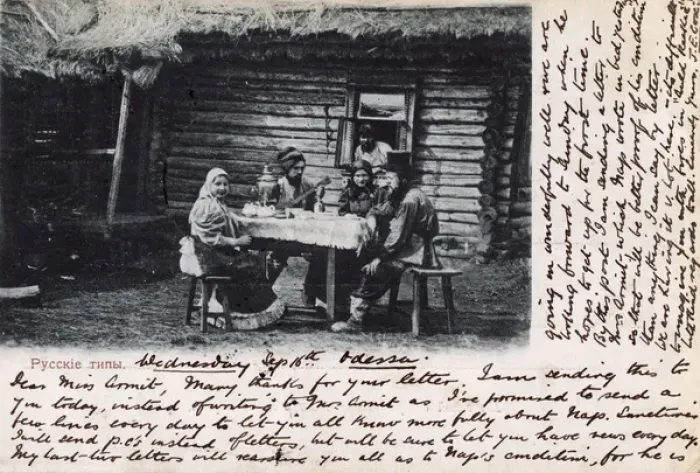 Русскіе типы.
Wednesday Sep 16th Odessa.
Dear Miss Armit, Many thanks for your letter. I am sending this to
you today, instead of writing to Mrs Armit as I've promised to send a
few lines every day to let you all know more fully about Naps.
I will send p.c's instead of letters, but will be sure to let you have news every day.
My last two letters will reassure you all as to Nap's condition, for he is
going on wonderfully well, we are
looking forward to Sunday when he
hopes to get up for the first time.
By this post I am sending a letter to
Mrs Armit which Naps wrote in bed
as that will be better proof of his condition
than anything I can say by letter.